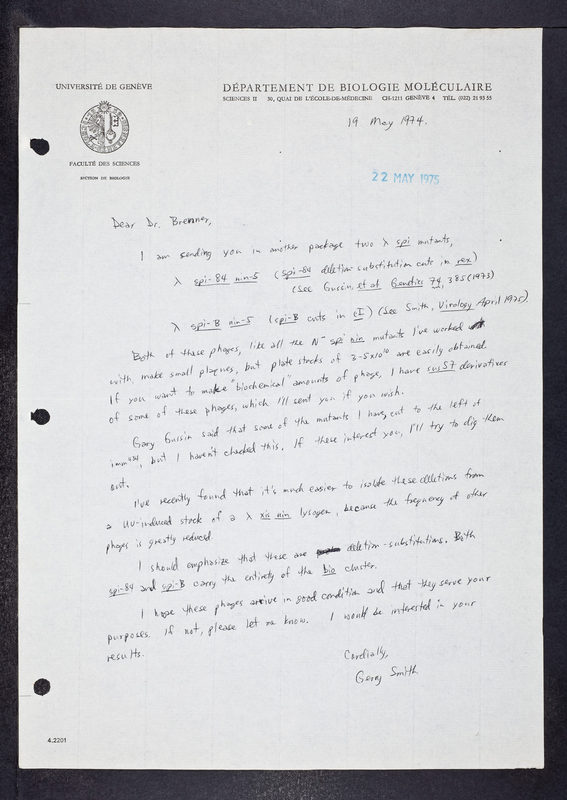 UNIVERSITÉ DE GENÈVE
DÉPARTEMENT DE BIOLOGIE MOLÉCULAIRE
SCIENCES II 30, QUAI DE L'ÉCOLE-DE-MÉDECINE CH-1211 GENÈVE 4 TÉL. (022) 21 93 55
FACULTÉ DES SCIENCES
SECTION DE BIOLOGIE
19 May 1974.
22 MAY 1975
Dear Dr. Brenner,
I am sending you in another package two λ spi mutants,
λ spi-84 nin-5 (spi-84 deletion-substitution cuts in rex)
(See Gussin, et al Genetics 74, 385 (1973)
λ spi-B nin-5 (spi-B cuts in cI) (See Smith, Virology April 1975)
Both of these phages, like all the N⁻ spi nin mutants I've worked
with, make small plaques, but plate stocks of 3-5x10¹⁰ are easily obtained.
If you want to make "biochemical" amounts of phage, I have susS7 derivatives
of some of these phages, which I'll sent you if you wish.
Gary Gussin said that some of the mutants I have, cut to the left of
imm⁴³⁴, but I haven't checked this. If these interest you, I'll try to dig them
out.
I've recently found that it's much easier to isolate these deletions from
a UV-induced stock of a λ xis nin lysogen, because the frequency of other
phages is greatly reduced.
I should emphasize that these are deletion-substitutions. Both
spi-84 and spi-B carry the entirety of the bio cluster.
I hope these phages arrive in good condition and that they serve your
purposes. If not, please let me know. I would be interested in your
results.
Cordially,
Gerry Smith
4.2201